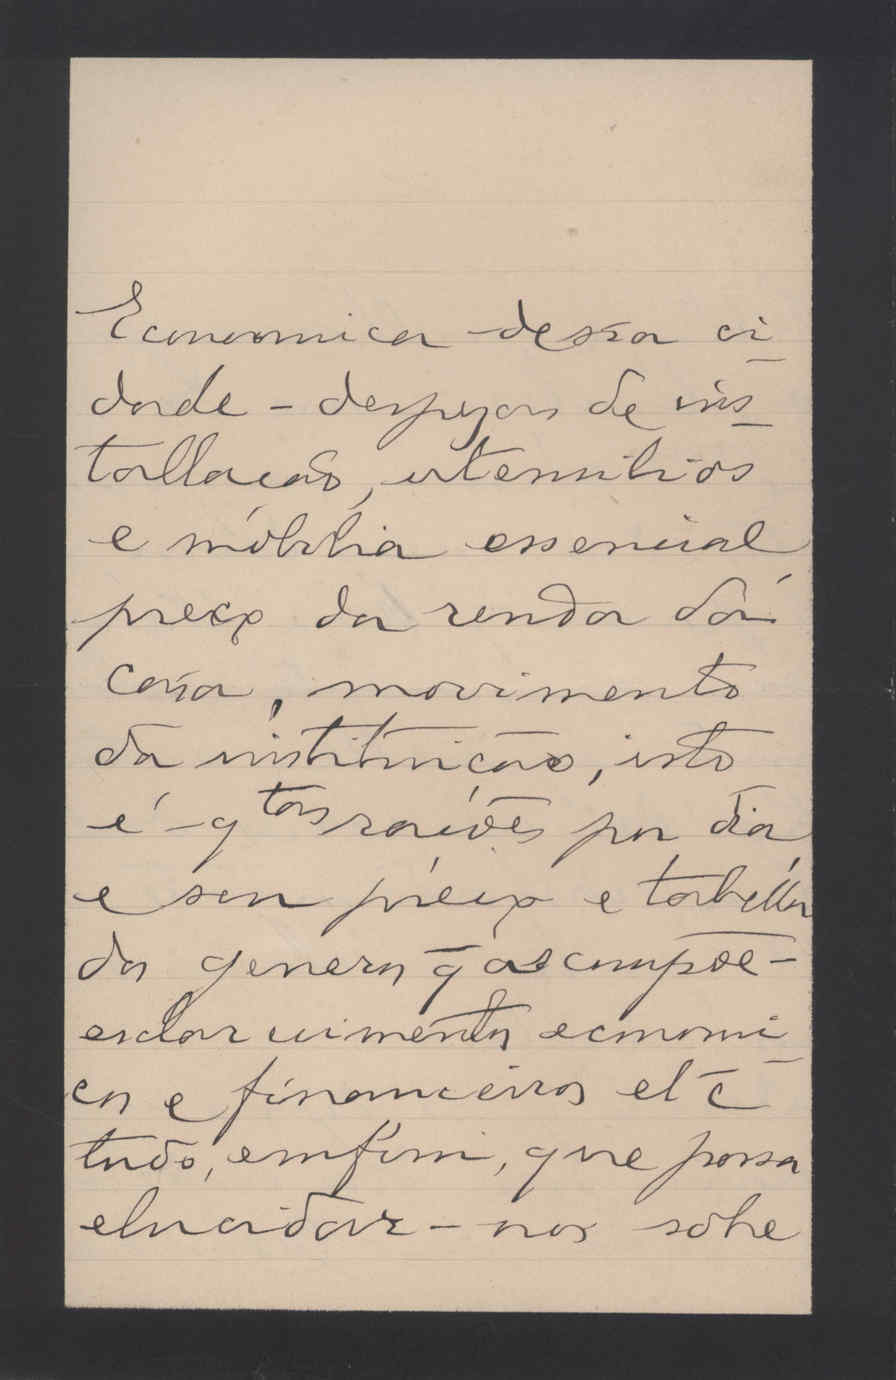 Economica dessa ci
dade – despezas de ins
tallação, utensilios
e móbilia essencial
preço da renda da
casa, movimento
da instituição, isto
é – qtas rações por dia
e seu preço e tabella
dos generos q̄ as compõe –
esclarecimentos economi
cos e financeiros etc
tudo, emfim, que possa
elucidar – nos sobre